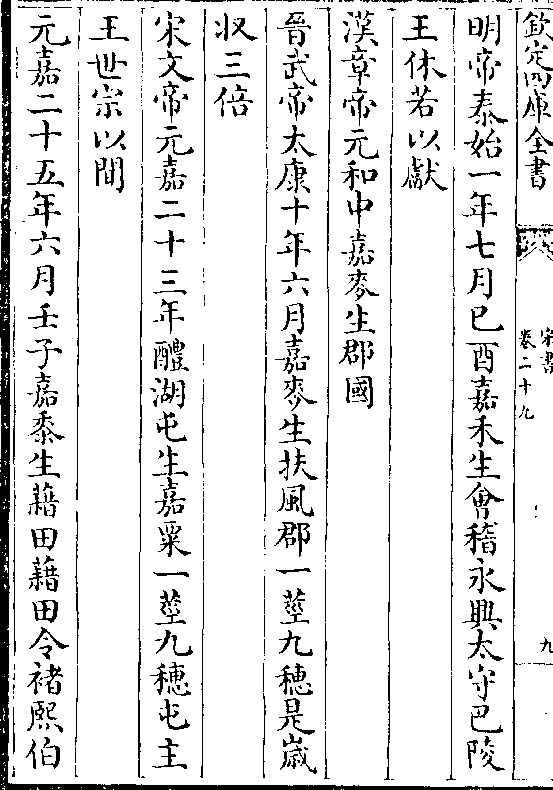 欽定四庫全書
宋書
卷二十九
九
明帝泰始一年七月己酉嘉禾生會稽永興太守巴陵
王休若以獻
漢章帝元和中嘉麥生郡國
晉武帝太康十年六月嘉麥生扶風郡一莖九穗是歲
収三倍
宋文帝元嘉二十三年醴湖屯生嘉粟一莖九穗屯主
王世宗以聞
元嘉二十五年六月壬子嘉黍生藉田藉田令褚熙伯